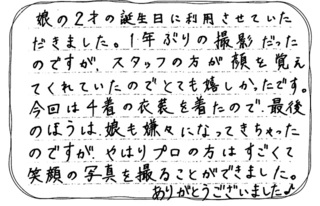 娘の2才の誕生日に利用させていた
だきました。1年ぶりの撮影だった
のですが、スタッフの方が顔を覚え
てくれていたのでとても嬉しかったです。
今回は4着の衣装を着たので、最後
のほうは、娘も嫌々になってきちゃった
のですが、やはりプロの方はすごくて
笑顔の写真を撮ることができました。
ありがとうございました♪